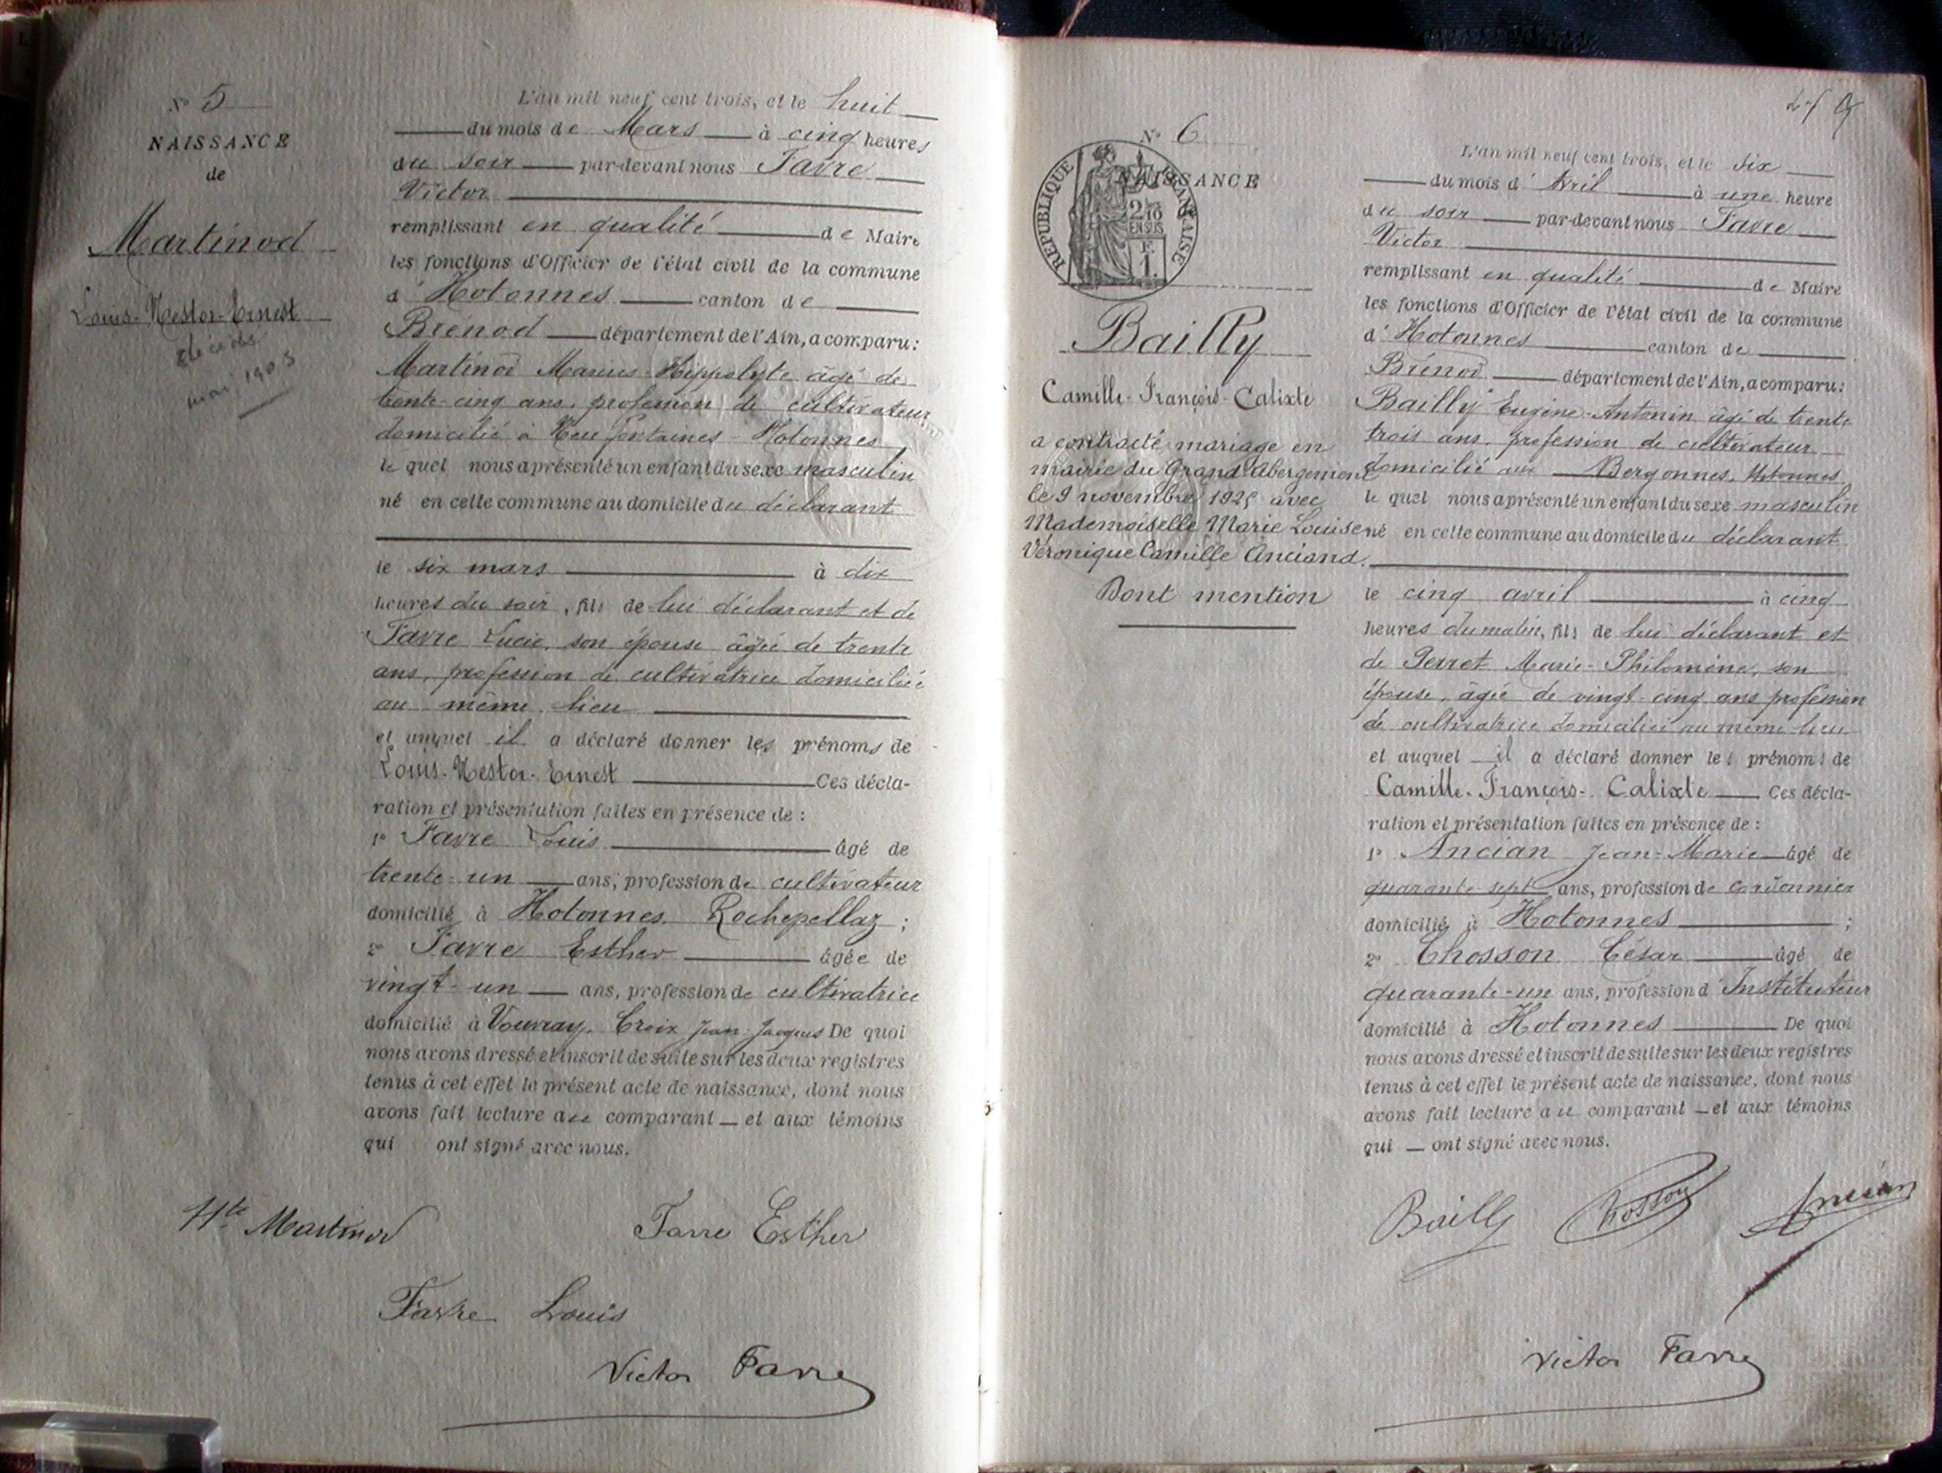 N° 5
NAISSANCE
de
Martinod
Louis-Nestor-Ernest
décédé
mai 1903
L'an mil neuf cent trois, et le huit
du mois de Mars à cinq heures
du soir par-devant nous Favre
Victor
remplissant en qualité de Maire
les fonctions d'Officier de l'état civil de la commune
d' Hotonnes canton de
Brénod département de l'Ain, a comparu:
Martinod Marius-Hippolyte âgé de
trente-cinq ans, profession de cultivateur
domicilié à Neufontaines-Hotonnes
le quel nous a présenté un enfant du sexe masculin
né en cette commune au domicile du déclarant
le six mars à dix
heures du soir, fils de lui déclarant et de
Favre Lucie, son épouse âgée de trente
ans, profession de cultivatrice domiciliée
au même lieu
et auquel il a déclaré donner les prénoms de
Louis-Nestor-Ernest Ces décla-
ration et présentation faites en présence de :
1° Favre Louis âgé de
trente-un ans, profession de cultivateur
domicilié à Hotonnes, Rochepellaz ;
2° Favre Esther âgée de
vingt-un ans, profession de cultivatrice
domicilié à Vouvray, Croix Jean-Jacques De quoi
nous avons dressé et inscrit de suite sur les deux registres
tenus à cet effet le présent acte de naissance, dont nous
avons fait lecture au comparant et aux témoins
qui ont signé avec nous.
Hte Martinod
Favre Esther
Favre Louis
Victor Favre
N° 6
REPUBLIQUE FRANÇAISE
NAISSANCE
2/10
EN SUS
F.
1.
Bailly
Camille-François-Calixte
a contracté mariage en
mairie du Grand Abergement
le 9 novembre 1925 avec
Mademoiselle Marie Louise
Véronique Camille Anciand.
Dont mention
L'an mil neuf cent trois, et le six
du mois d' Avril à une heure
du soir par-devant nous Favre
Victor
remplissant en qualité de Maire
les fonctions d'Officier de l'état civil de la commune
d' Hotonnes canton de
Brénod département de l'Ain, a comparu:
Bailly Eugène-Antonin âgé de trente
trois ans, profession de cultivateur
domicilié aux Bergonnes, Hotonnes
le quel nous a présenté un enfant du sexe masculin
né en cette commune au domicile du déclarant
le cinq avril à cinq
heures du matin, fils de lui déclarant et
de Perret Marie-Philomène, son
épouse, âgée de vingt-cinq ans profession
de cultivatrice domiciliée au même lieu
et auquel il a déclaré donner les prénoms de
Camille-François-Calixte Ces décla-
ration et présentation faites en présence de :
1° Ancian Jean-Marie âgé de
quarante-sept ans, profession de cordonnier
domicilié à Hotonnes ;
2° Chosson César âgé de
quarante-un ans, profession d' Instituteur
domicilié à Hotonnes De quoi
nous avons dressé et inscrit de suite sur les deux registres
tenus à cet effet le présent acte de naissance, dont nous
avons fait lecture au comparant et aux témoins
qui ont signé avec nous.
Bailly Chosson Ancian
Victor Favre